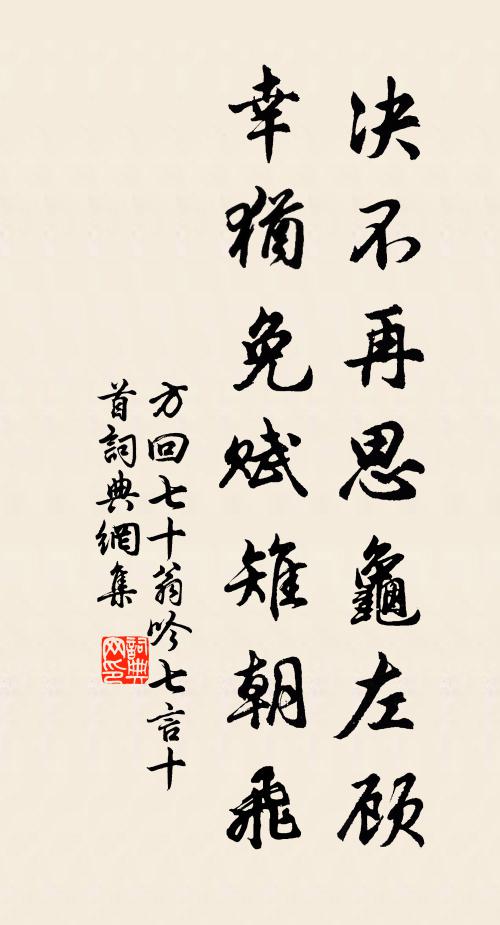 决不再思龜左顾
幸猶免賦雉朝飛
方回七十翁吟七言十
首詞典網集
詞典網印